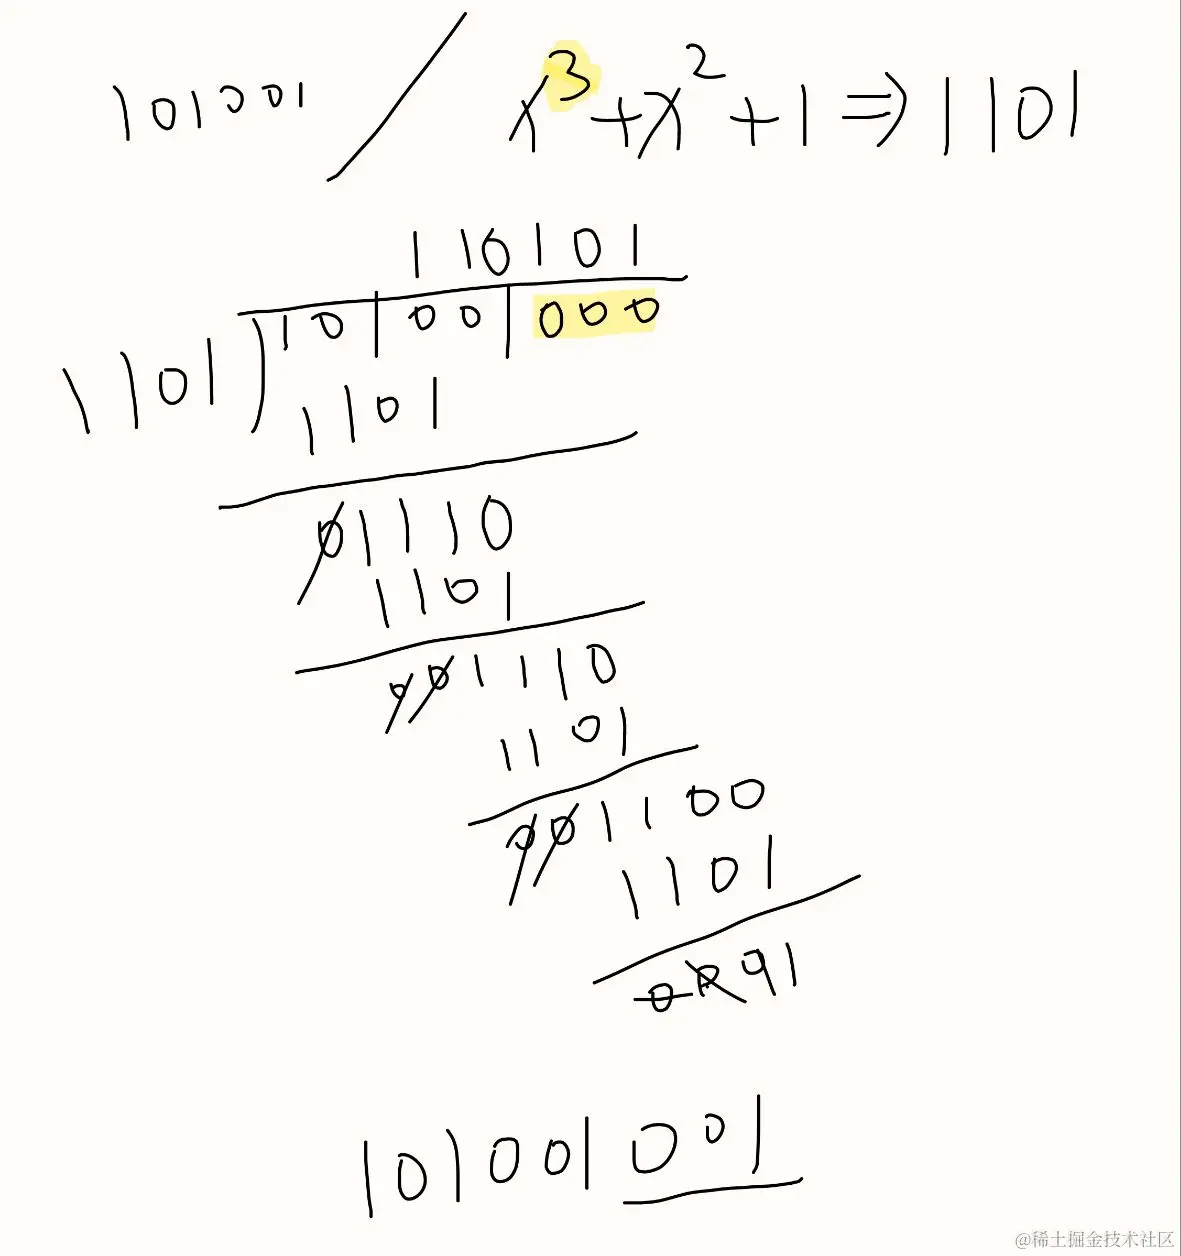 101001 / x³+x²+1⇒1101
110101
1101)101001000
1101
01110
1101
001110
1101
001100
1101
0001
101001001
@稀土掘金技术社区